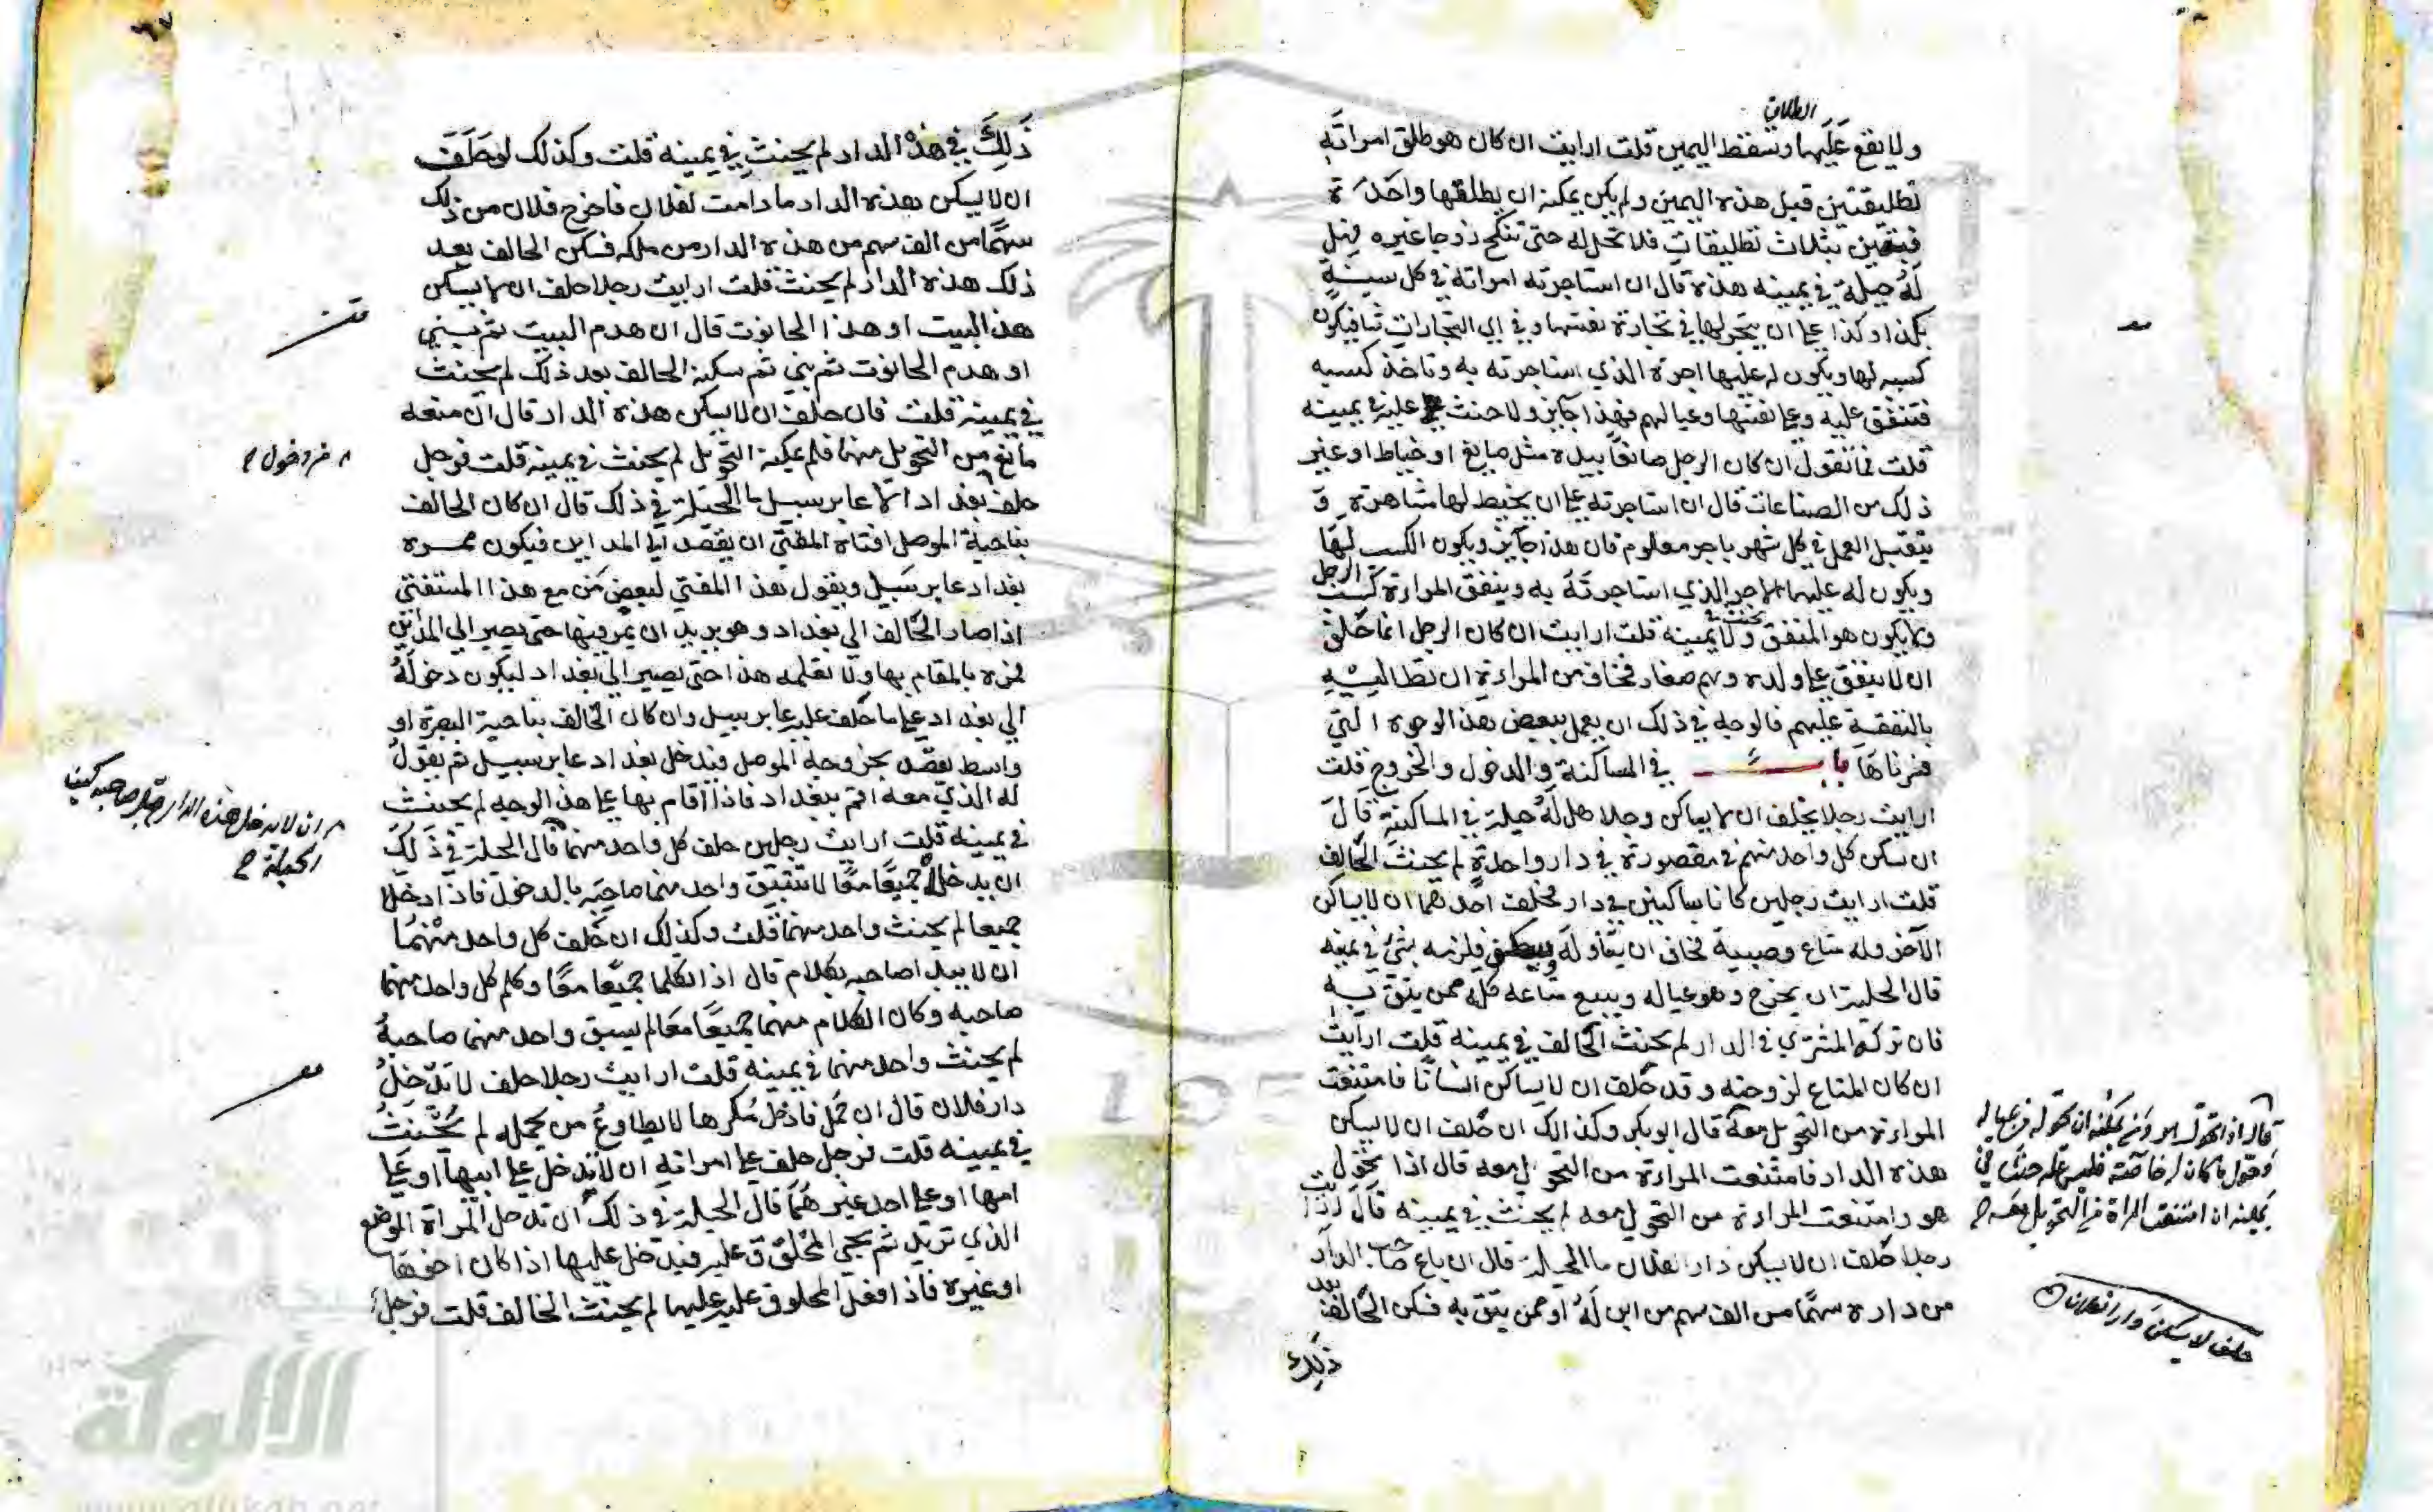 الطلاق
ولا يقع عليها وتسقط اليمين قلت ارايت ان كان هو طلق امراته
تطليقتين قبل هذه اليمين ولم يكن يمكنه ان يطلقها واحدة
فتبين بثلاث تطليقات فلا تحل له حتى تنكح زوجا غيره فهل
له حيلة في يمينه هذه قال ان استاجرته امراته في كل سنة
بكذا وكذا على ان يتجر لها في تجارة بعينها وفي اي التجارات شا فيكون
كسبه لها ويكون له عليها اجرة الذي استاجرته به وتاخذ كسبه
فتنفق عليه وعلى نفسها وعيالهم فهذا جايز ولا حنث عليه في يمينه
قلت فما تقول ان كان الرجل صانعا بيده مثل صايغ او خياط او غير
ذلك من الصناعات قال ان استاجرته على ان يخيط لها مشاهرة و
يتقبل العمل في كل شهر باجر معلوم فان هذا جايز ويكون الكسب لها
ويكون له عليها الاجر الذي استاجرته به وينفق المراءة كسب الرجل
ولا يكون هو المنفق ولا يحنث في يمينه قلت ارايت ان كان الرجل انما حلف
ان لا ينفق على ولده وهم صغار فخاف من المراءة ان تطالبه
بالنفقة عليهم فالوجه في ذلك ان يعمل ببعض هذه الوجوه التي
فسرناها باب في المساكنة والدخول والخروج قلت
ارايت رجلا يحلف ان لا يساكن رجلا هل له حيلة في المساكنة قال
ان سكن كل واحد منهم في مقصورة في دار واحدة لم يحنث الحالف
قلت ارايت رجلين كانا ساكنين في دار فحلف احدهما ان لا يساكن
الاخر وله متاع وصبية فخاف ان فلزمه شئ في يمينه
قال الحيلة ان يخرج وهو عياله ويبيع متاعه كله ممن يثق به
فان تركه المشتري في الدار لم يحنث الحالف في يمينه قلت ارايت
ان كان المتاع لزوجته وقد حلف ان لا يساكن انسانا فامتنعت
المراءة من التحويل معه قال ابو بكر وكذالك ان حلف ان لا يسكن
هذه الدار فامتنعت المراءة من التحويل معه قال اذا تحول
هو وامتنعت المراءة من التحويل معه لم يحنث في يمينه قال ارايت
رجلا حلف ان لا يسكن دارا لفلان ما الحيلة قال ان باع صاحب الدار
من داره سهما من الف سهم من ابن له او ممن يثق به فسكن الحالف بعد
ذلك
قال اذا تحول هو ولم يمكنه ان يحوله من عياله
وحول ما كان له خاصة فليس عليه حنث في
يمينه ان امتنعت المراة من التحويل معه
حلف لا يسكن دارا لفلان
ذلك في هذه الدار لم يحنث في يمينه قلت وكذلك لو حلف
ان لا يسكن هذه الدار ما دامت لفلان فاخرج فلان من ذلك
سهما من الف سهم من هذه الدار من ملكه فسكن الحالف بعد
ذلك هذه الدار لم يحنث قلت ارايت رجلا حلف ان لا يسكن
هذا البيت او هذا الحانوت قال ان هدم البيت ثم بني
او هدم الحانوت ثم بني ثم سكنه الحالف بعد ذلك لم يحنث
في يمينه قلت فان حلف ان لا يسكن هذه الدار قال ان منعه
مانع من التحويل منها فلم يمكنه التحويل لم يحنث في يمينه قلت فرجل
حلف بغداد الا عابر سبيل ما الحيلة في ذلك قال ان كان الحالف
بناحية الموصل افتاه المفتي ان يقصد الى المداين فيكون ممره
بغداد عابر سبيل ويقول هذا المفتي لبعض من مع هذا المستفتي
اذا صار الحالف الى بغداد وهو يريد ان يمر فيها حتى يصير الى المداين
فمره بالمقام بها ولا تعلمه هذا حتى يصير الى بغداد ليكون دخوله
الى بغداد على ما حلف عليه عابر سبيل وان كان الحالف بناحية البصرة او
واسط يقصد بخروجه الموصل فيدخل بغداد عابر سبيل ثم يقول
له الذي معه اقم ببغداد فاذا اقام بها على هذا الوجه لم يحنث
في يمينه قلت ارايت رجلين حلف كل واحد منهما قال الحيلة في ذلك
ان يدخلا جميعا معا لا يسبق واحد منهما صاحبه بالدخول فاذا دخلا
جميعا لم يحنث واحد منهما قلت وكذلك ان حلف كل واحد منهما
ان لا يبدا صاحبه بكلام قال اذا تكلما جميعا معا وكلم كل واحد منهما
صاحبه وكان الكلام منهما جميعا معا لم يسبق واحد منهما صاحبه
لم يحنث واحد منهما في يمينه قلت ارايت رجلا حلف لا يدخل
دار فلان قال ان حمل فادخل مكرها لا يطاوع من يحمله لم يحنث
في يمينه قلت فرجل حلف على امراته ان لا تدخل على ابيها او على
امها او على احد غيرهما قال الحيلة في ذلك ان تدخل المراة الموضع
الذي تريد ثم يجي المحلوف عليه فيدخل عليها اذا كان اخوها
او غيره فاذا فعل المحلوف عليه عليها لم يحنث الحالف قلت فرجل
من دخول
ان لا يدخل هذه الدار قبل صاحبه كيف
الحيلة